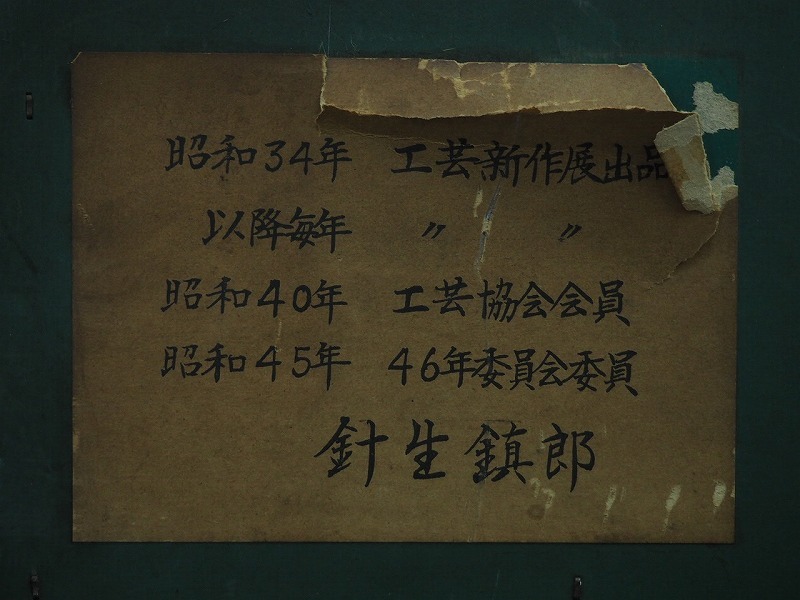 昭和34年 工芸新作展出品
以降毎年 〃 〃
昭和40年 工芸協会会員
昭和45年 46年委員会委員
針生鎮郎